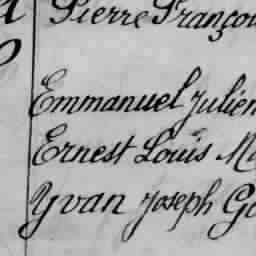 Pierre Franço
Emmanuel Julien
Ernest Louis
Yvan Joseph